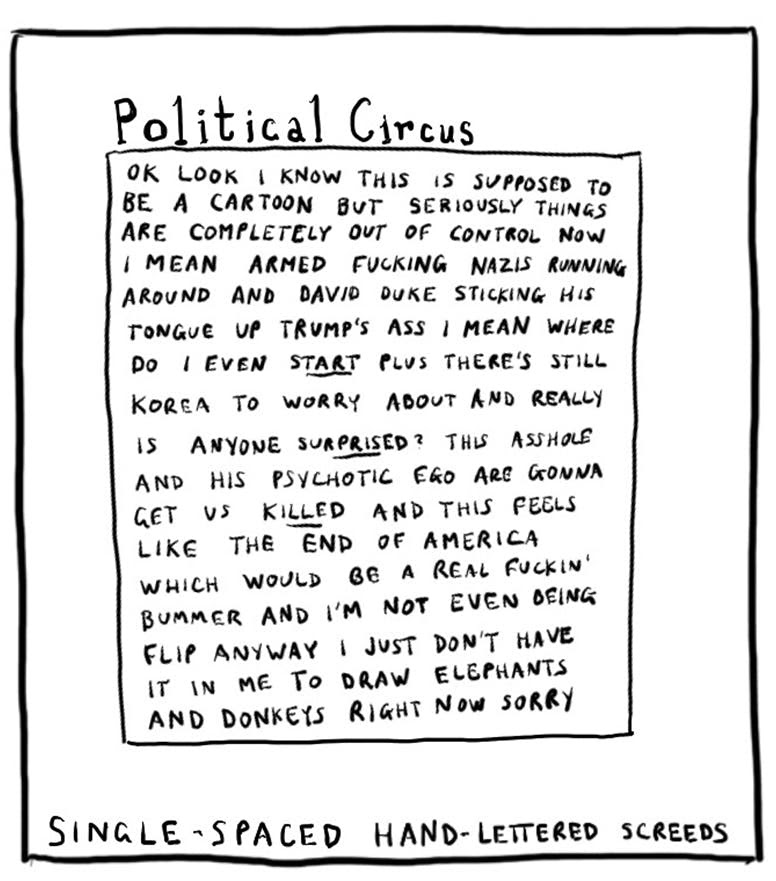 Political Circus
OK LOOK I KNOW THIS IS SUPPOSED TO
BE A CARTOON BUT SERIOUSLY THINGS
ARE COMPLETELY OUT OF CONTROL NOW
I MEAN ARMED FUCKING NAZIS RUNNING
AROUND AND DAVID DUKE STICKING HIS
TONGUE UP TRUMP'S ASS I MEAN WHERE
DO I EVEN START PLUS THERE'S STILL
KOREA TO WORRY ABOUT AND REALLY
IS ANYONE SURPRISED? THIS ASSHOLE
AND HIS PSYCHOTIC EGO ARE GONNA
GET US KILLED AND THIS FEELS
LIKE THE END OF AMERICA
WHICH WOULD BE A REAL FUCKIN'
BUMMER AND I'M NOT EVEN BEING
FLIP ANYWAY I JUST DON'T HAVE
IT IN ME TO DRAW ELEPHANTS
AND DONKEYS RIGHT NOW SORRY
SINGLE-SPACED HAND-LETTERED SCREEDS